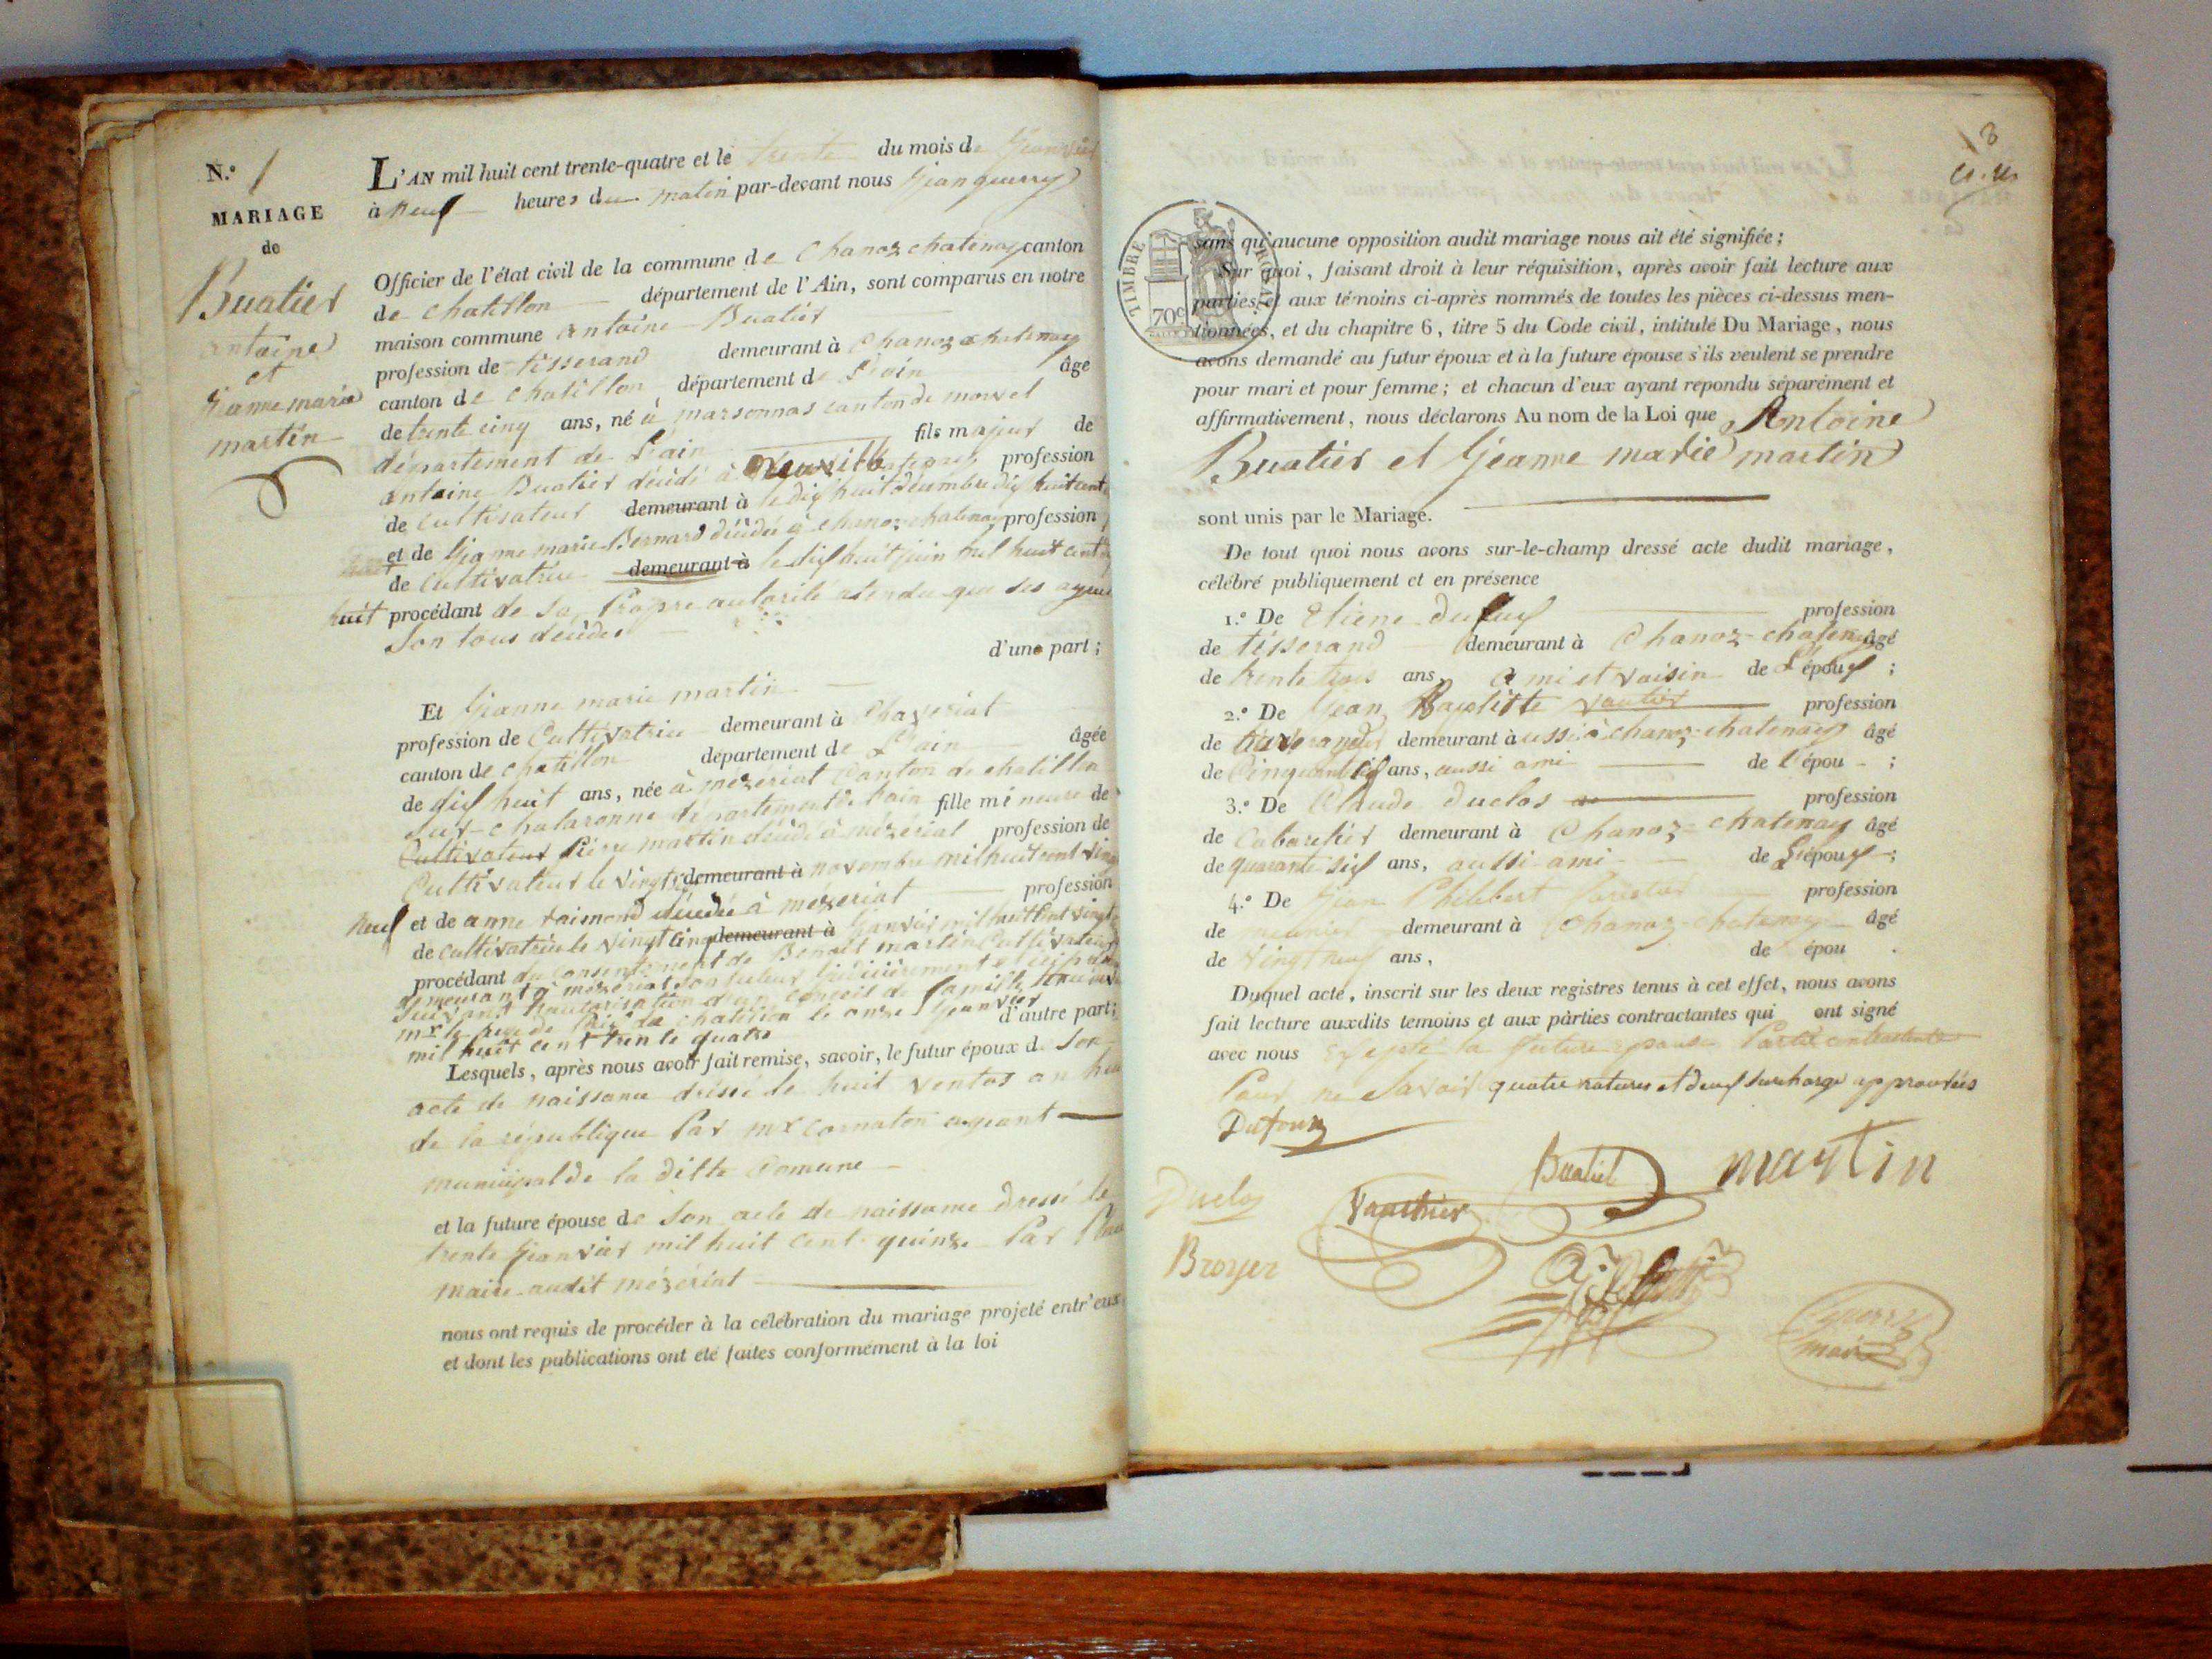 N.º 1
MARIAGE
de
Buatier
antoine
et
Jeanne marie
martin
L'AN mil huit cent trente-quatre et le trente du mois de Jeanvier
à neuf heures du matin par-devant nous Jean guerry
Officier de l'état civil de la commune de Chanoz chatenay canton
de chatillon département de l'Ain, sont comparus en notre
maison commune antoine Buatier
profession de tisserand demeurant à Chanoz chatenay
canton de chatillon département de L'ain âgé
de trente cinq ans, né à marsonnas canton de
département de L'ain fils majeur de
antoine Buatier décédé à profession
de cultivateur demeurant à le dix huit décembre dix huit cent
et de Jeanne marie Bernard décédée à chanoz chatenay profession
de cultivatrice demeurant à le dix huit juin mil huit cent
huit procédant de sa propre autorité atendu que ses
son tous décédés
d'une part ;
Et Jeanne marie martin
profession de Cultivatrice demeurant à Chaveriat
canton de chatillon département de L'ain âgée
de dix huit ans, née à mézériat Canton de chatillon
sur chalaronne département de L'ain fille mineure de
Cultivateur Pierre martin décédé à mézériat profession de
Cultivateur le vingt demeurant à novembre mil huit cent vingt
neuf et de anne raimond décédée à mézeriat profession
de cultivatrice le vingt cinq demeurant à Janvier mil huit cent vingt
procédant du consentement de Benoit martin Cultivateur
demeurant à mézériat son tuteur
suivant l'autorisation d'un conseil de famille
mr le juge de paix de chatillon le onze Jeanvier d'autre part ;
mil huit cent trente quatre
Lesquels, après nous avoir fait remise, savoir, le futur époux de son
acte de naissance dressé le huit ventos an
de la république Par mr Cornaton agent
municipal de la ditte Comune
et la future épouse de son acte de naissance dressé le
trente Jeanvier mil huit cent quinze Par
maire audit mézériat
nous ont requis de procéder à la célébration du mariage projeté entr'eux
et dont les publications ont été faites conformément à la loi
TIMBRE ROYAL
70c
sans qu'aucune opposition audit mariage nous ait été signifiée ;
Sur quoi, faisant droit à leur réquisition, après avoir fait lecture aux
parties et aux témoins ci-après nommés de toutes les pièces ci-dessus men-
tionnées, et du chapitre 6, titre 5 du Code civil, intitulé Du Mariage, nous
avons demandé au futur époux et à la future épouse s'ils veulent se prendre
pour mari et pour femme ; et chacun d'eux ayant repondu séparément et
affirmativement, nous déclarons Au nom de la Loi que Antoine
Buatier et Jeanne marie martin
sont unis par le Mariage.
De tout quoi nous avons sur-le-champ dressé acte dudit mariage,
célébré publiquement et en présence
1.º De Etiene profession
de tisserand demeurant à Chanoz-chatenay âgé
de trente trois ans, ami et voisin de L'époux ;
2.º De Jean Baptiste vautier profession
de demeurant à aussi à chanoz-chatenay âgé
de Cinquante six ans, aussi ami de l'épou ;
3.º De Claude duclos profession
de Cabaretier demeurant à Chanoz-chatenay âgé
de quarante six ans, aussi ami de L'époux ;
4.º De Jean Philibert profession
de meunier demeurant à Chanoz-chatenay âgé
de vingt neuf ans, de épou .
Duquel acte, inscrit sur les deux registres tenus à cet effet, nous avons
fait lecture auxdits temoins et aux parties contractantes qui ont signé
avec nous Exepté la future épouse Partie contractante
Pour ne savoir quatre ratures et deux surcharge approuvées
Dufour
Buatier martin
Duclos Vauthier
Broyer
guerry
maire